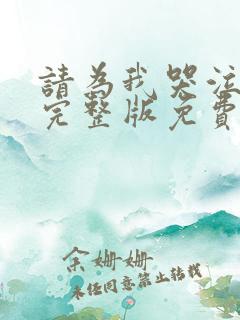 請為我哭泣
完整版免費
余姗姗
未经同意禁止转载